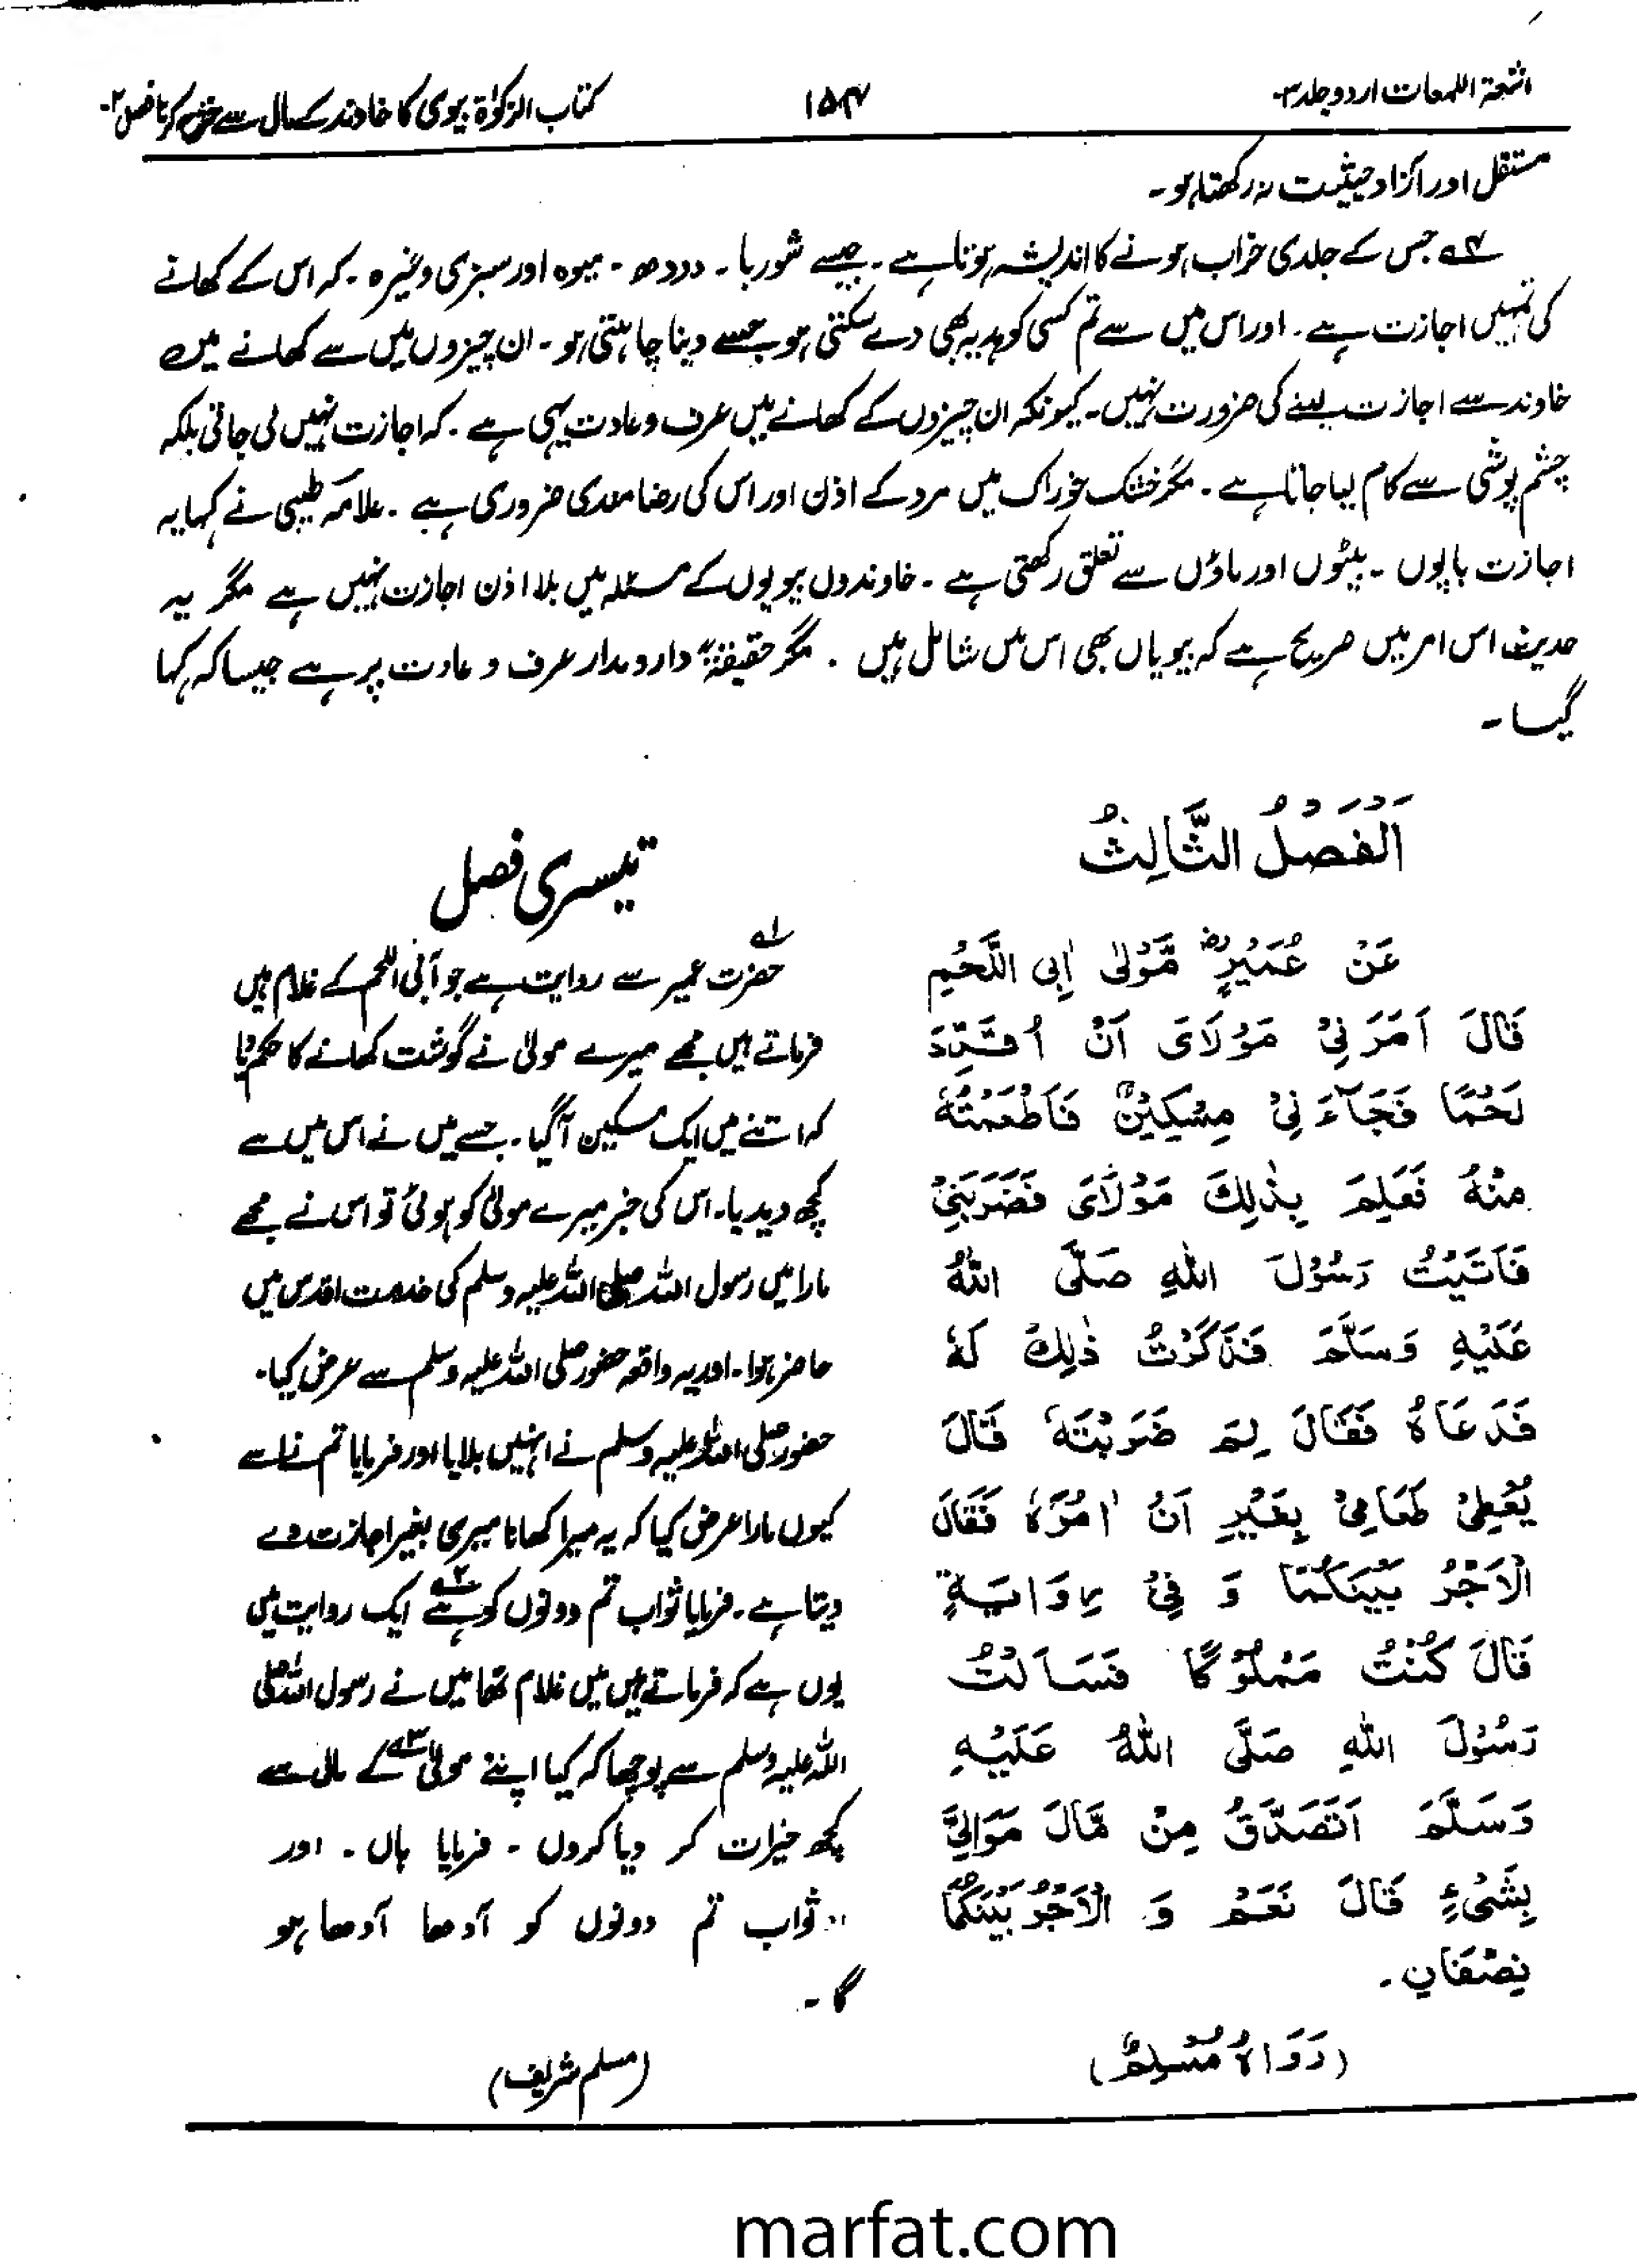 اشعۃ اللمعات اردو جلد ۳-
۱۵۴
کتاب الزکوٰۃ بیوی کا خاوند کے مال سے خرچ کرنا فصل ۲-
مستقل اور آزاد حیثیت نہ رکھتا ہو۔
جس کے جلدی خراب ہونے کا اندیشہ ہوتا ہے۔ جیسے شوربا۔ دودھ۔ میوہ اور سبزی وغیرہ۔ کہ اس کے کھانے
کی تمہیں اجازت ہے۔ اور اس میں سے تم کسی کو ہدیہ بھی دے سکتی ہو جسے دینا چاہتی ہو۔ ان چیزوں میں سے کھانے میں
خاوند سے اجازت لینے کی ضرورت نہیں۔ کیونکہ ان چیزوں کے کھانے میں عرف و عادت یہی ہے۔ کہ اجازت نہیں لی جاتی بلکہ
چشم پوشی سے کام لیا جاتا ہے۔ مگر خشک خوراک میں مرد کے اذن اور اس کی رضا مندی ضروری ہے۔ علامہ طیبی نے کہا یہ
اجازت باپوں۔ بیٹوں اور ماؤں سے تعلق رکھتی ہے۔ خاوندوں بیویوں کے مسئلہ میں بلا اذن اجازت نہیں ہے مگر یہ
حدیث اس امر میں صریح ہے کہ بیویاں بھی اس میں شامل ہیں۔ مگر حقیقۃً دارومدار عرف و عادت پر ہے جیسا کہ کہا
گیا۔
اَلْفَصْلُ الثَّالِثُ
عَنْ عُمَيْرٍ رض مَّوْلٰى اٰبِى اللَّحْمِ
قَالَ اَمَرَنِیْ مَوْلَایَ اَنْ اُقَدِّدَ
لَحْمًا فَجَآءَنِیْ مِسْكِيْنٌ فَاَطْعَمْتُهٗ
مِنْهُ فَعَلِمَ بِذٰلِكَ مَوْلَایَ فَضَرَبَنِیْ
فَاَتَيْتُ رَسُوْلَ اللّٰهِ صَلَّى اللّٰهُ
عَلَيْهِ وَسَلَّمَ فَذَكَرْتُ ذٰلِكَ لَهٗ
فَدَعَاهُ فَقَالَ لِمَ ضَرَبْتَهٗ قَالَ
يُعْطِیْ طَعَامِیْ بِغَيْرِ اَنْ اٰمُرَهٗ فَقَالَ
الْاَجْرُ بَيْنَكُمَا وَ فِیْ رِوَايَةٍ
قَالَ كُنْتُ مَمْلُوْكًا فَسَاَلْتُ
رَسُوْلَ اللّٰهِ صَلَّى اللّٰهُ عَلَيْهِ
وَسَلَّمَ اَتَصَدَّقُ مِنْ مَّالِ مَوَالِیَّ
بِشَیْءٍ قَالَ نَعَمْ وَ الْاَجْرُ بَيْنَكُمَا
نِصْفَانِ۔
(رَوَاهُ مُسْلِمٌ)
تیسری فصل
حضرت عمیر سے روایت ہے جو آبی اللحم کے غلام ہیں
فرماتے ہیں مجھے میرے مولیٰ نے گوشت کھانے کا حکم دیا
کہ اتنے میں ایک مسکین آ گیا۔ جسے میں نے اس میں سے
کچھ دیدیا۔ اس کی خبر میرے مولیٰ کو ہوئی تو اس نے مجھے
مارا میں رسول اللہ صلی اللہ علیہ وسلم کی خدمت اقدس میں
حاضر ہوا۔ اور یہ واقعہ حضور صلی اللہ علیہ وسلم سے عرض کیا۔
حضور صلی اللہ علیہ وسلم نے انہیں بلایا اور فرمایا تم نے اسے
کیوں مارا عرض کیا کہ یہ میرا کھانا میری بغیر اجازت دے
دیتا ہے۔ فرمایا ثواب تم دونوں کو ہے ۲ ایک روایت میں
یوں ہے کہ فرماتے ہیں میں غلام تھا میں نے رسول اللہ صلی
اللہ علیہ وسلم سے پوچھا کہ کیا اپنے مولیٰ ۳ کے مال سے
کچھ خیرات کر دیا کروں۔ فرمایا ہاں۔ اور
ثواب تم دونوں کو آدھا آدھا ہو
گا۔
(مسلم شریف)
marfat.com